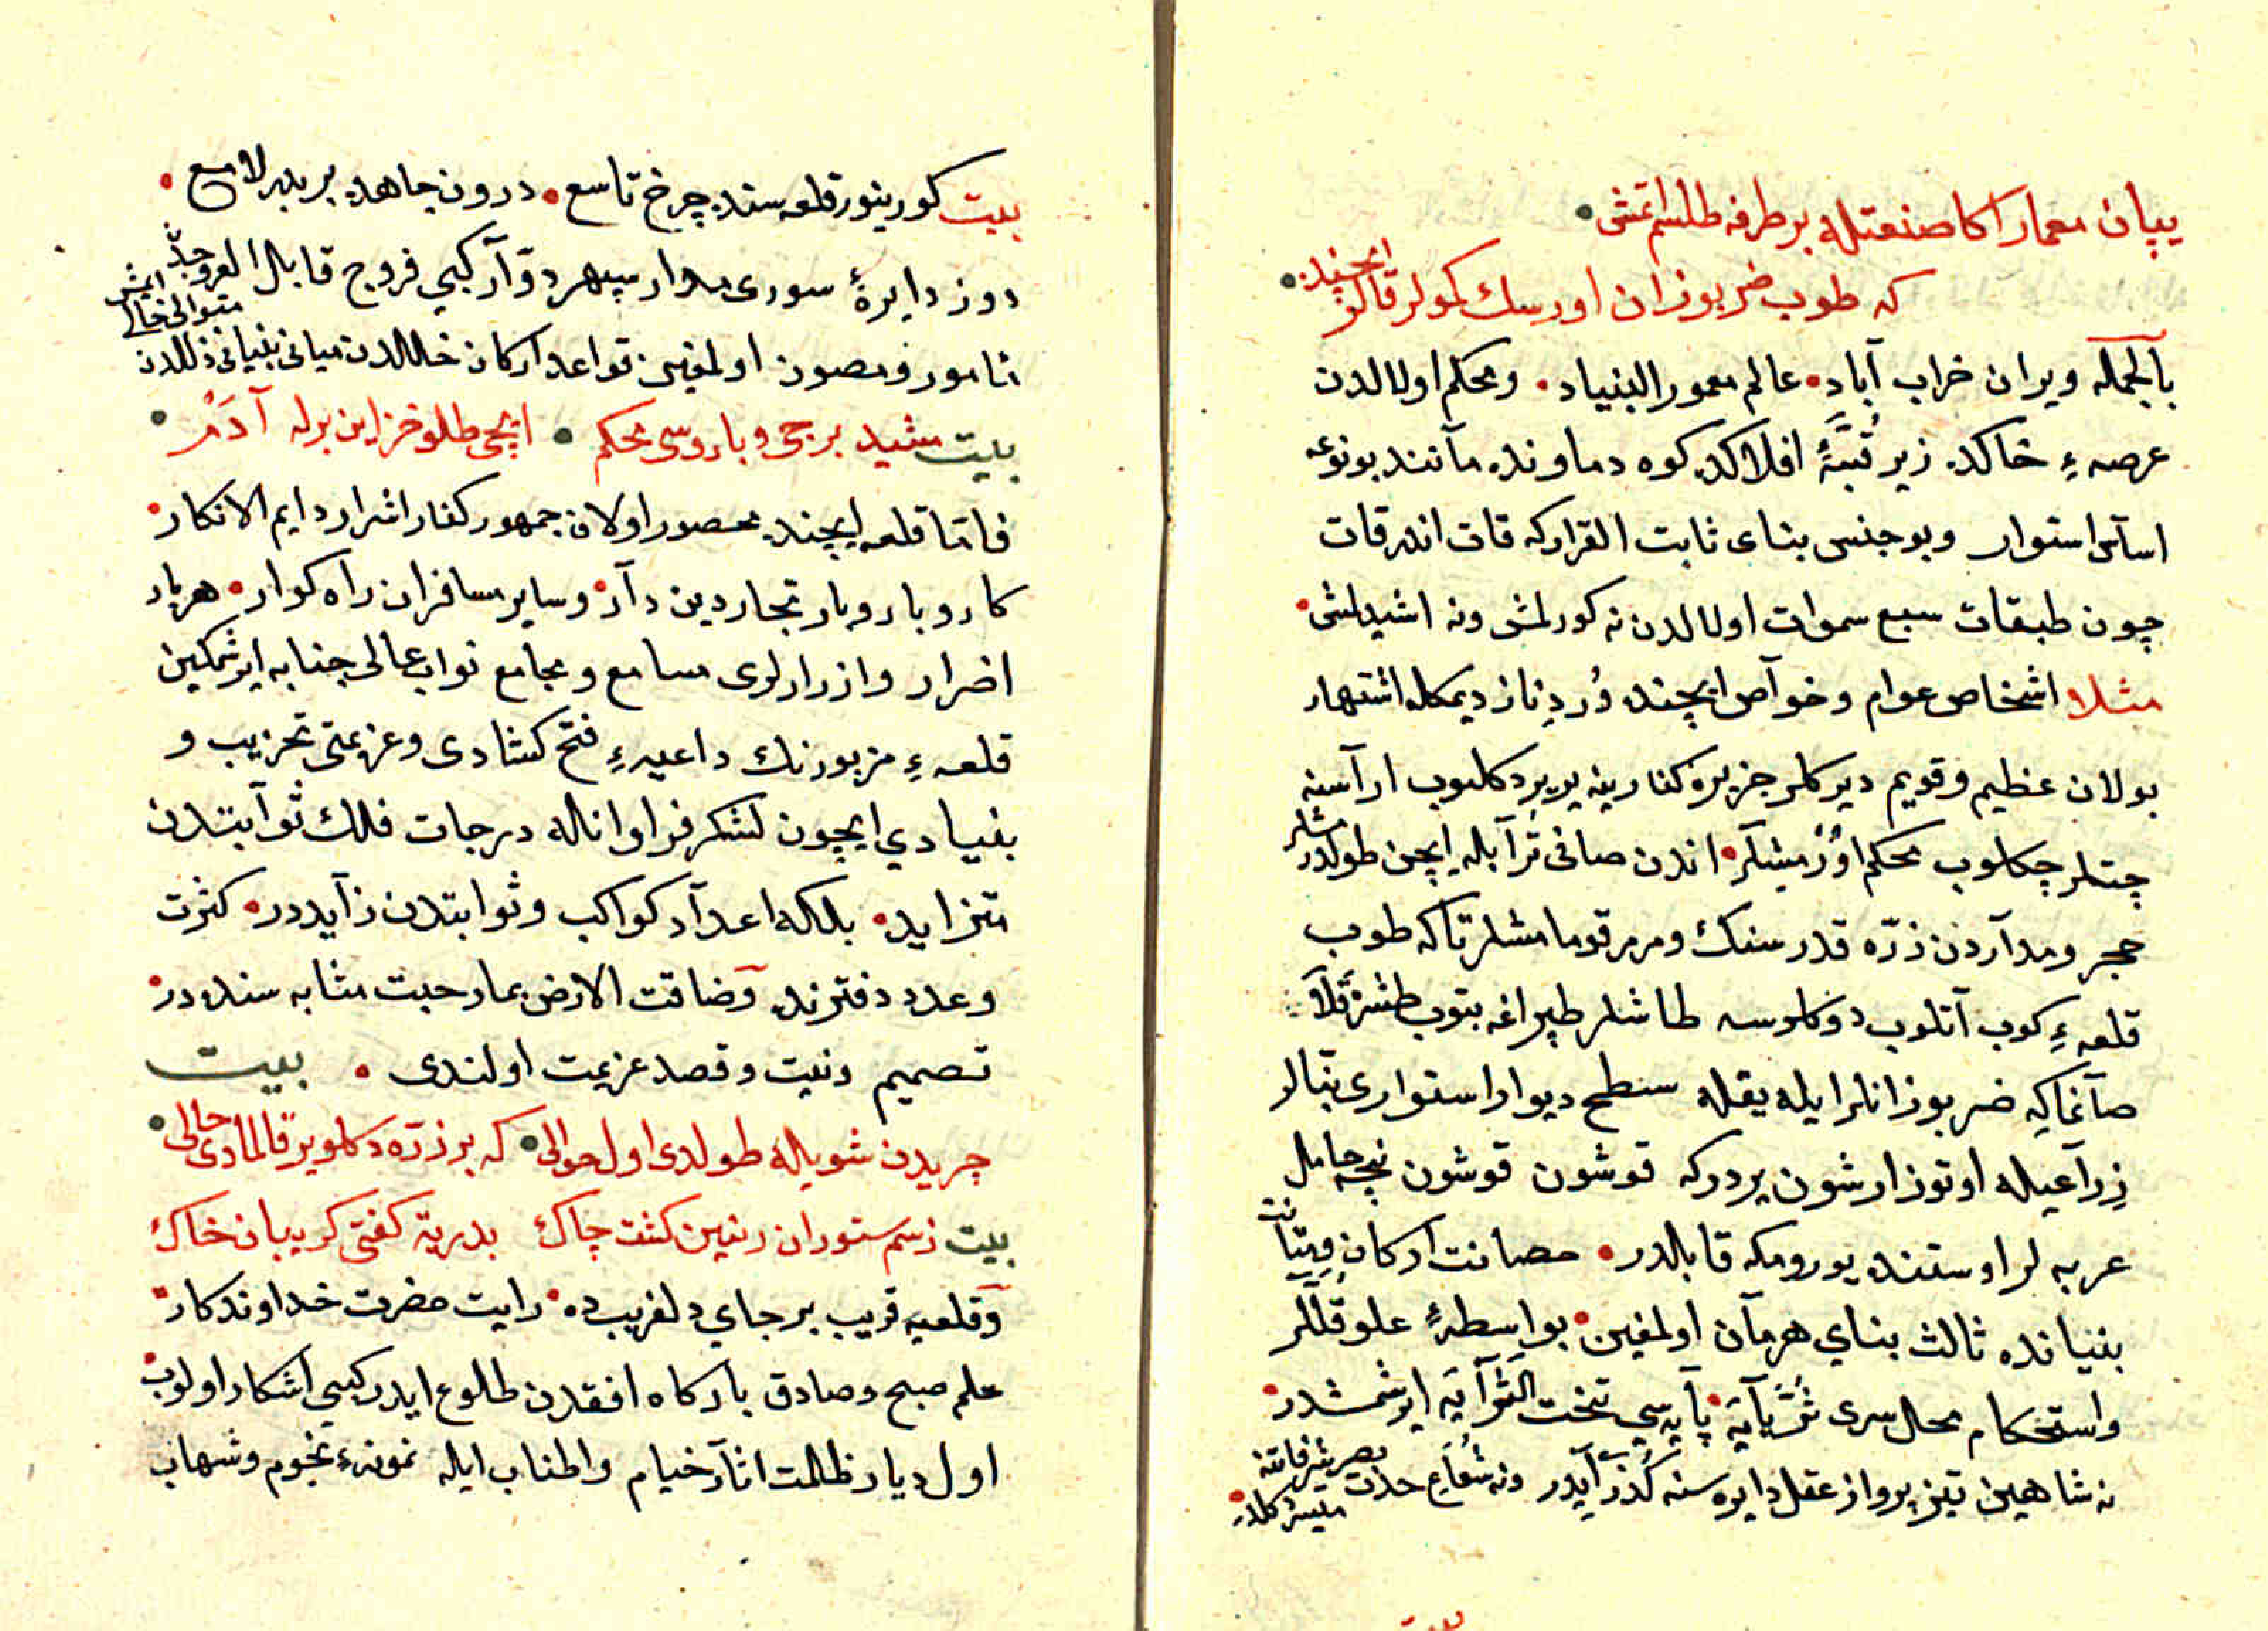 بیپان معمار اکا صنعتله بر طرفه طلسم اتمش
که طوب ضربوزان اورسك كولر قالو ایچنده
بالجمله ویران خراب آباد عالم معمور البنیاد ومحکم اولالدن
عرصهء خاکده زیر قبّۀ افلاکده کوه دماونده مانند بو نوعه
اساس استوار وبو جنس بنای ثابت القرار که قات اندر قات
چون طبقات سبع سموات اولالدن نه کورلمش ونه اشیدلمش
مثلا اشخاص عوام وخوآص ایچنده دیمکله اشتهار
بولان عظیم وقویم دیرکلر جزیره کنارینه یریر دکلوب ارآسنه
چتلر چکلوب محکم اورمیشلر اندن صافی ترآبله ایچن طولدرمشلر
حجر ومدآردن ذرّه قدر سنك ومرمر قومامشلر تاکه طوب
قلعهءِ کوب آتلوب دوکلوسه طاشلر طپراغه بتوب طشره قلا
صانماکه ضربوزانلر ایله یقله سطح دیوار استواری بنالر
ذرآعیله اوتوز ارشون یردرکه قوشون قوشون نیجه حامل
عربه لر اوستنده یورومکه قابلدر حصانت ارکان ومتانت
بنیانده ثالث بنای هرمان اولمغین بواسطۀ علو قللر
واستحکام محل سری ثریایه پایه سی تخت الثرآیه ایرشمشدر
نه شاهین تیز پرواز عقل دایره سنه کذر ایدر ونه شعاع حدّت بصر شرفاتنه میسر کلدر
بیت کورینور قلعه سنده چرخ تاسع درون جاهده بر بدر لامع
دوز دایرۀ سوری مدار سپهر دوّآر کبی فروج قابل العروجدن
نامور ومصون اولمغین قواعد ارکان خللدن مبانی بنیانی ذللدن متوالی خالی ایمش
بیت مشید برجی وباروسی محکم ایچی طلو خزاین برله آدم
فامّا قلعه ایچنده محصور اولان جمهور کفار اشرار دایم الانکار
کار وبار وبار تجار دین دآر وسایر مسافران راه کوار هربار
اضرار وازرارلری مسامع ومجامع نواب عالی جنابه ایرشمکین
قلعهءِ مزبورنك داعیهءِ فتح کشادی وعزیمتی تخریب و
بنیادي ایچون لشکر فراوانله درجات فلك ثوآبتدن
متزاید بلکه اعدآد کواکب وثوابتدن زآیددر کثرت
وعدد دفترنده وضاقت الارض بما رحبت مثابه سنده در
تصمیم ونیت وقصد عزیمت اولندی بیت
جریدن شویله طولدی اول حوالی که بر ذرّه دکلو یر قالمادی خالی
بیت ز سم ستوران زمین کشت چاك بدریه کفتی کریبان خاك
وقلعیه قریب بر جاي دلفریبده رایت حضرت خداوندکار
علم صبح وصادق بارکاه افقدن طلوع ایدر کبی اشکار اولوب
اول دیار ظلمت اثآر خیام واطناب ایله نمونهءِ نجوم وشهاب
بیت